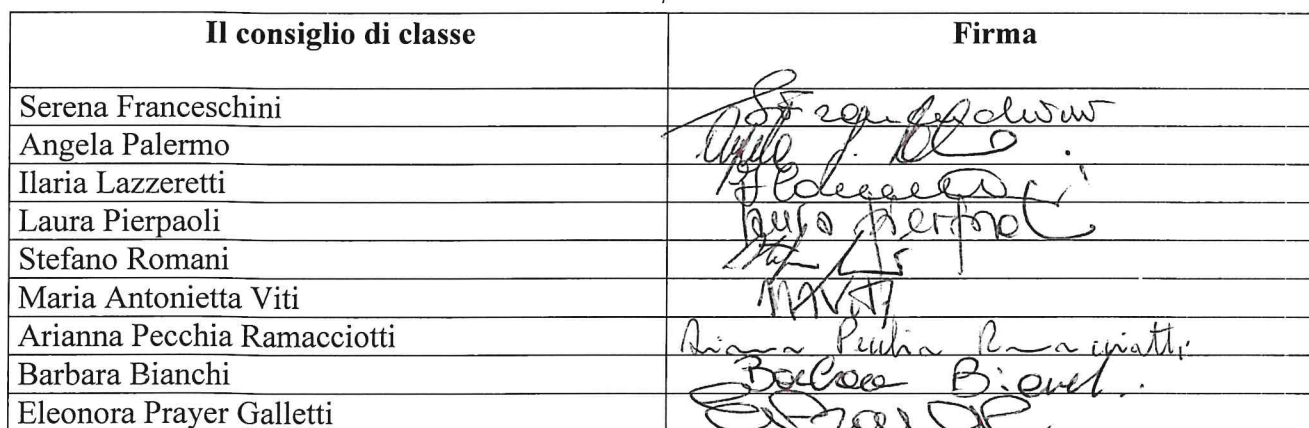 Il consiglio di classe Firma
Serena Franceschini
Angela Palermo
Ilaria Lazzeretti
Laura Pierpaoli
Stefano Romani
Maria Antonietta Viti MAViti
Arianna Pecchia Ramacciotti Arianna Pecchia Ramacciotti
Barbara Bianchi Barbara Bianchi
Eleonora Prayer Galletti